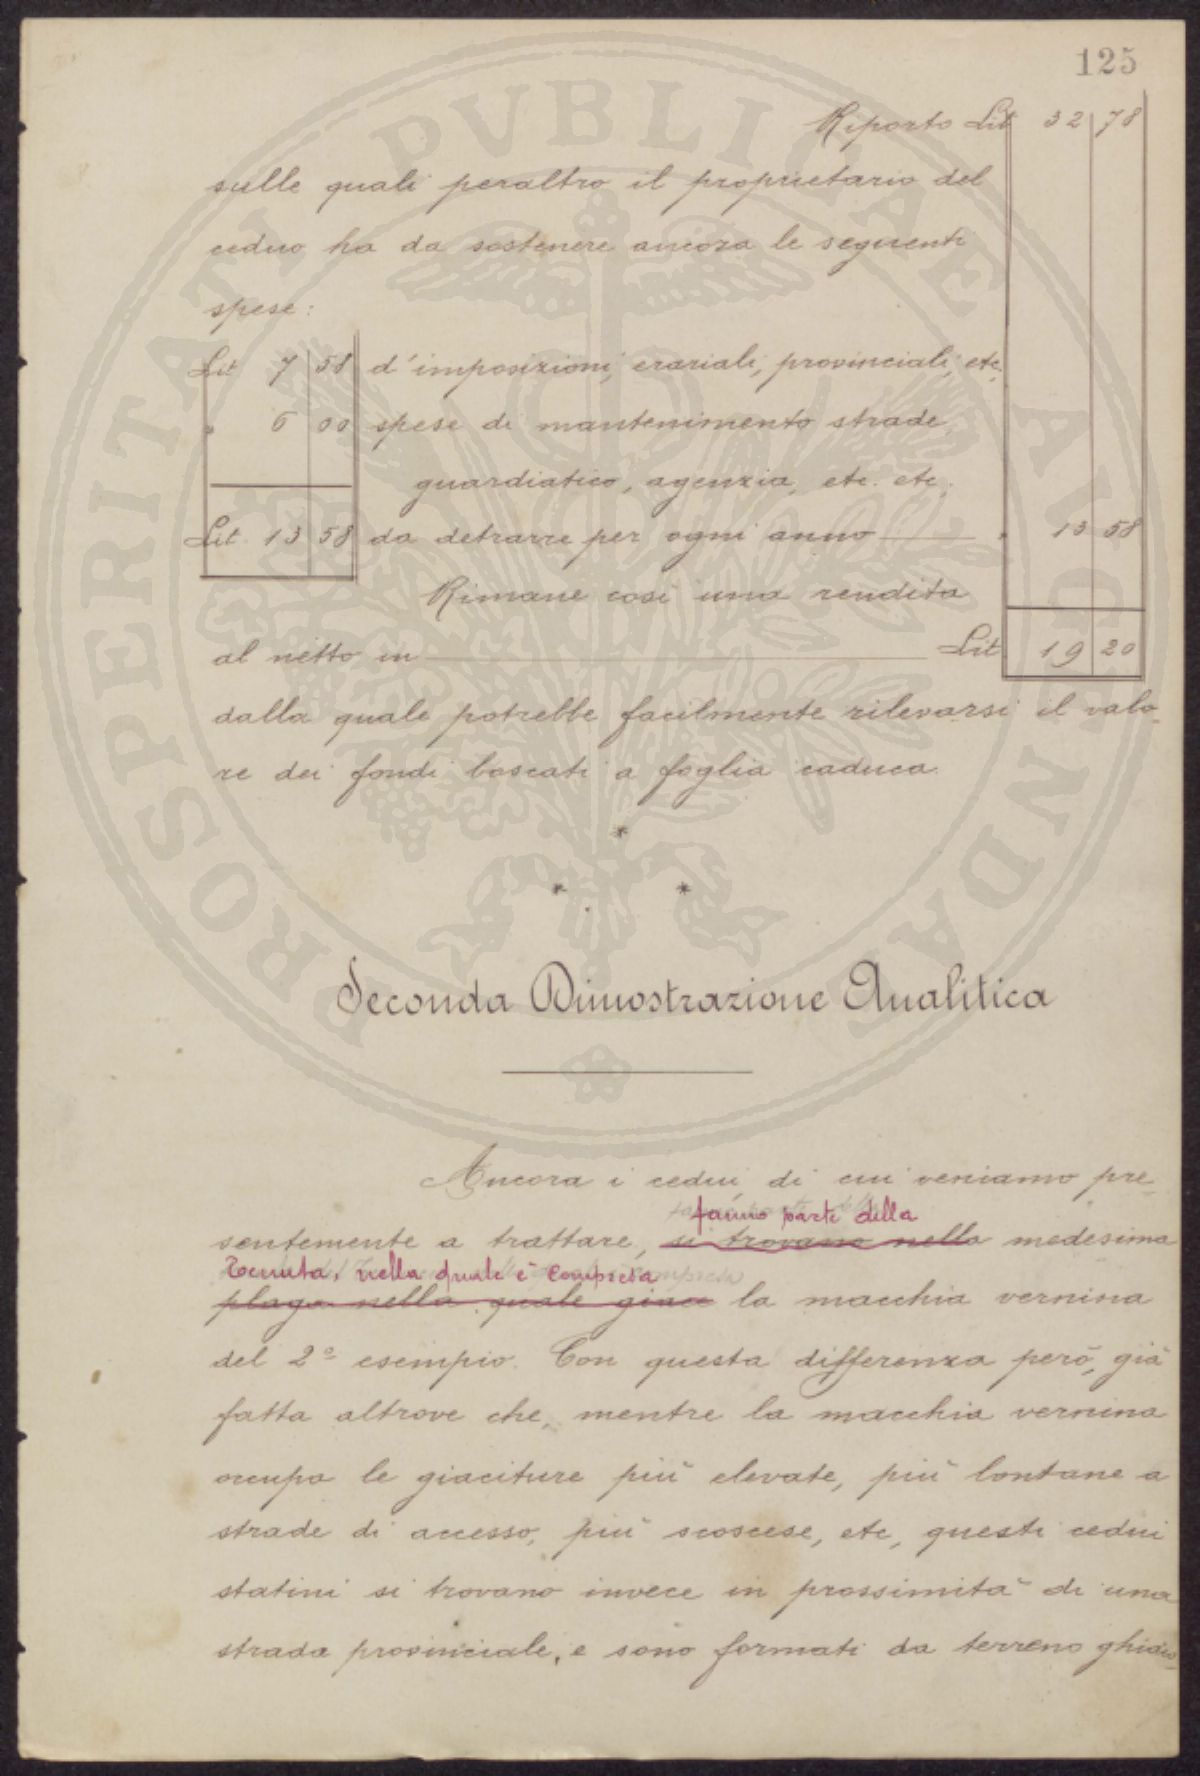 125
Riporto Lit 32 78
sulle quali peraltro il proprietario del
ceduo ha da sostenere ancora le seguenti
spese:
Lit 7 58 d'imposizioni, erariali, provinciali, etc,
" 6 00 spese di mantenimento strade,
guardiatico, agenzia, etc. etc.
Lit. 13 58 da detrarre per ogni anno " 13 58
Rimane così una rendita
al netto in Lit 19 20
dalla quale potrebbe facilmente rilevarsi il valo-
re dei fondi boscati a foglia caduca.
* * *
Seconda Dimostrazione Analitica
Ancora i cedui di cui veniamo pre-
fanno parte della
sentemente a trattare, si trovano nella medesima
Tenuta, nella quale è compresa
plaga nella quale giace la macchia vernina
del 2º esempio. Con questa differenza però, già
fatta altrove che, mentre la macchia vernina
occupa le giaciture più elevate, più lontane a
strade di accesso, più scoscese, etc, questi cedui
statini si trovano invece in prossimità di una
strada provinciale, e sono formati da terreno ghiaio-
PROSPERITATI PVBLICAE AVGENDAE